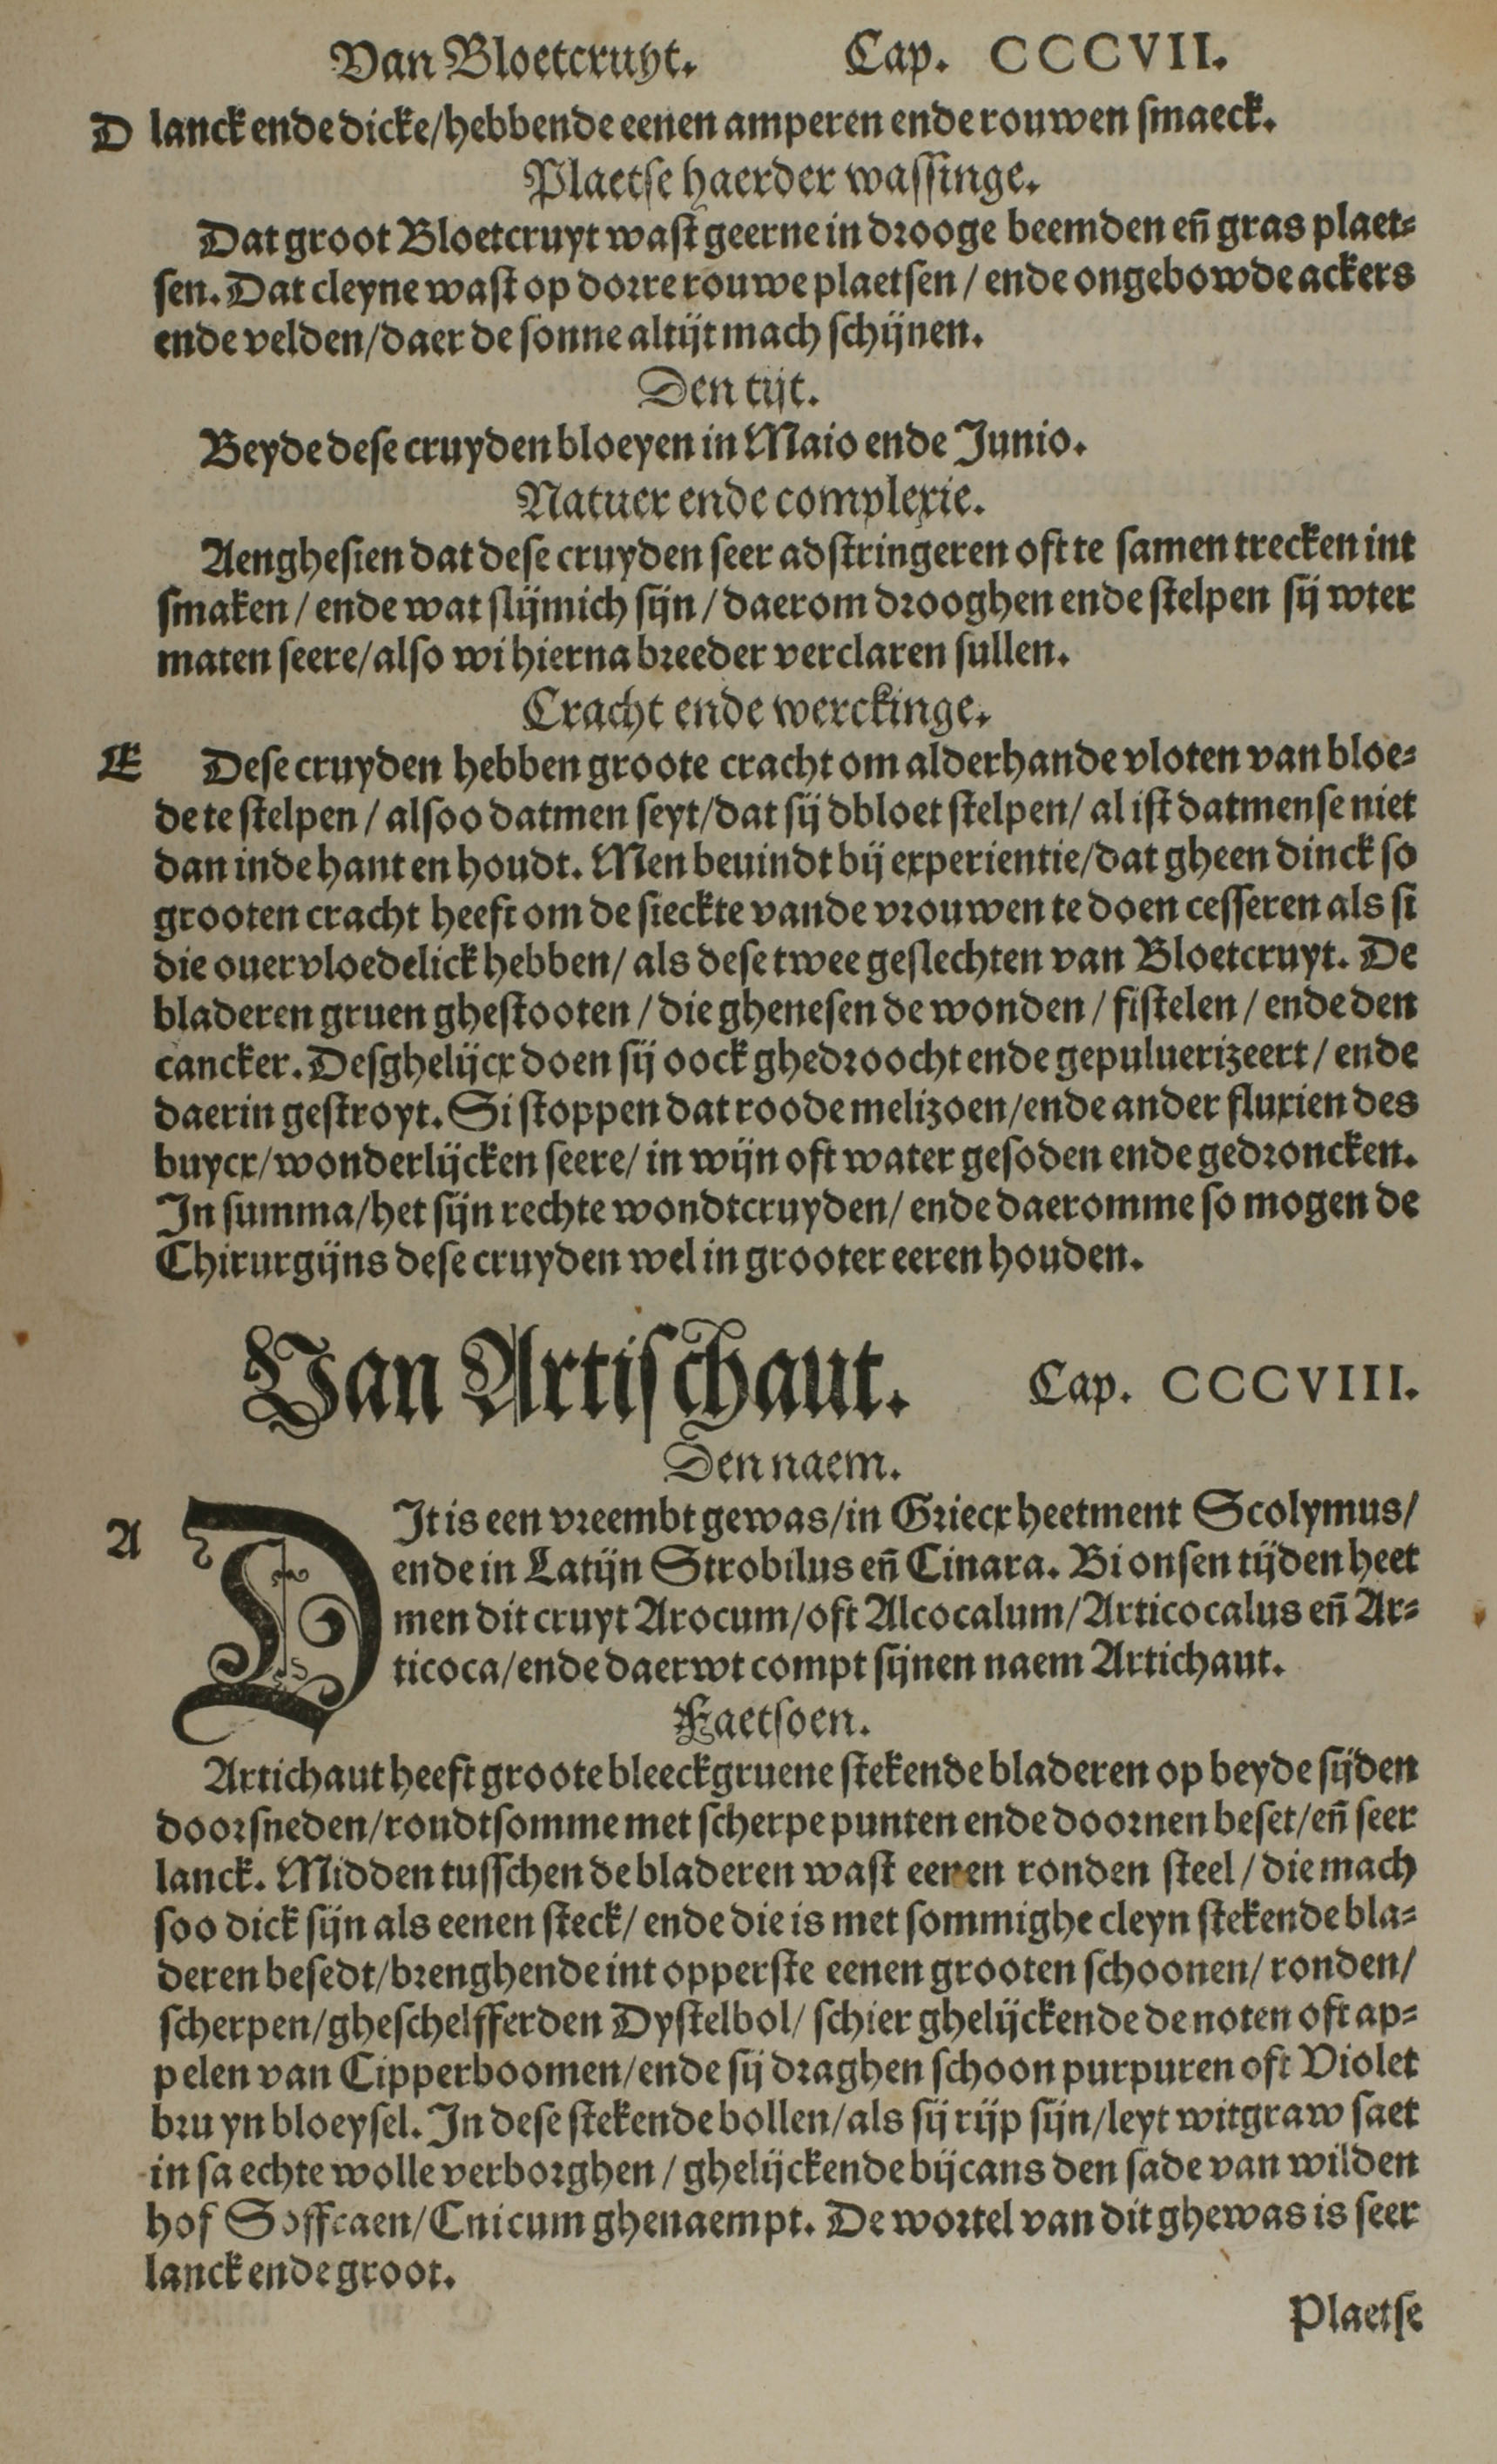 Van Bloetcruyt. Cap. CCCVII.
D lanck ende dicke/hebbende eenen amperen ende rouwen smaeck.
Plaetse haerder wassinge.
Dat groot Bloetcruyt wast geerne in drooge beemden en̄ gras plaet⸗
sen. Dat cleyne wast op dorre rouwe plaetsen / ende ongebowde ackers
ende velden/daer de sonne altijt mach schijnen.
Den tijt.
Beyde dese cruyden bloeyen in Maio ende Junio.
Natuer ende complexie.
Aenghesien dat dese cruyden seer adstringeren oft te samen trecken int
smaken / ende wat slijmich sijn / daerom drooghen ende stelpen sij wter
maten seere/also wi hierna breeder verclaren sullen.
Cracht ende werckinge.
E Dese cruyden hebben groote cracht om alderhande vloten van bloe⸗
de te stelpen / alsoo datmen seyt/dat sij dbloet stelpen/ al ist datmense niet
dan inde hant en houdt. Men beuindt bij experientie/dat gheen dinck so
grooten cracht heeft om de sieckte vande vrouwen te doen cesseren als si
die ouervloedelick hebben/ als dese twee geslechten van Bloetcruyt. De
bladeren gruen ghestooten / die ghenesen de wonden / fistelen / ende den
cancker. Desghelijcx doen sij oock ghedroocht ende gepuluerizeert / ende
daerin gestroyt. Si stoppen dat roode melizoen/ende ander fluxien des
buycx/wonderlijcken seere/ in wijn oft water gesoden ende gedroncken.
In summa/het sijn rechte wondtcruyden/ ende daeromme so mogen de
Chirurgijns dese cruyden wel in grooter eeren houden.
Van Artischaut. Cap. CCCVIII.
Den naem.
A DIt is een vreembt gewas/in Griecx heetment Scolymus/
ende in Latijn Strobilus en̄ Cinara. Bi onsen tijden heet
men dit cruyt Arocum/oft Alcocalum/Articocalus en̄ Ar⸗
ticoca/ende daer wt compt sijnen naem Artichaut.
Faetsoen.
Artichaut heeft groote bleeckgruene stekende bladeren op beyde sijden
doorsneden/rondtsomme met scherpe punten ende doornen beset/en̄ seer
lanck. Midden tusschen de bladeren wast eenen ronden steel / die mach
soo dick sijn als eenen steck/ ende die is met sommighe cleyn stekende bla⸗
deren besedt/brenghende int opperste eenen grooten schoonen/ ronden/
scherpen/gheschelfferden Dystelbol/ schier ghelijckende de noten oft ap⸗
pelen van Cipperboomen/ende sij draghen schoon purpuren oft Violet
bruyn bloeysel. In dese stekende bollen/als sij rijp sijn/leyt witgraw saet
in saechte wolle verborghen / ghelijckende bijcans den sade van wilden
hof Soffraen/Cnicum ghenaempt. De wortel van dit ghewas is seer
lanck ende groot.
Plaetse